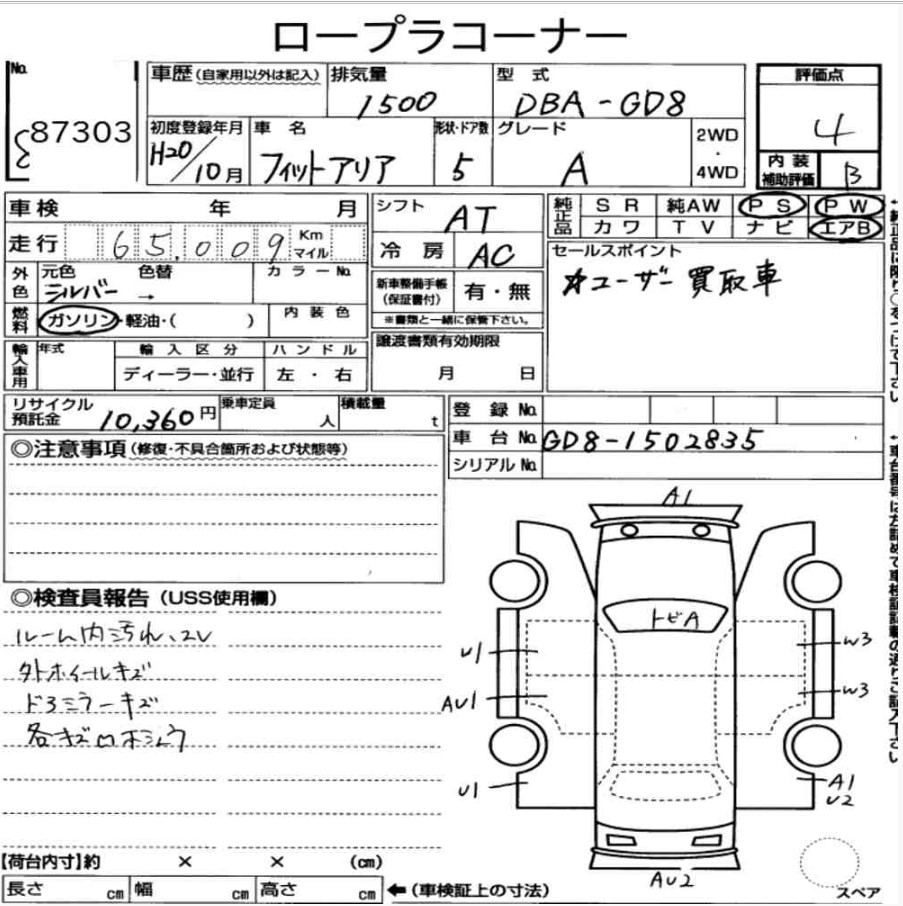 ロープラコーナー
No.
87303
車歴(自家用以外は記入)
排気量
1500
型式
DBA-GD8
評価点
4
初度登録年月
H20/10月
車名
フィットアリア
形状・ドア数
5
グレード
A
2WD
・
4WD
内装
補助評価
B
車検 年 月
走行 65,009 Km
マイル
シフト
AT
冷房
AC
純正品
SR 純AW PS PW
カワ TV ナビ エアB
外色
元色 色替 カラーNo.
シルバー →
燃料
ガソリン・軽油・( )
内装色
新車整備手帳
(保証書付)
有・無
※書類と一緒に保管下さい。
セールスポイント
☆ユーザー買取車
輸入車用
年式
輸入区分
ハンドル
ディーラー・並行
左・右
譲渡書類有効期限
月 日
リサイクル
預託金
10,360円
乗車定員
人
積載量
t
登録No.
車台No. GD8-1502835
シリアルNo.
◎注意事項(修復・不具合箇所および状態等)
◎検査員報告(USS使用欄)
ルーム内汚れ、
外ホイールキズ
ドアミラーキズ
各キズ
A1
トビA
U1
W3
AU1
W3
U1
A1
U2
AU2
スペア
【荷台内寸】約 × × (cm)
長さ cm 幅 cm 高さ cm ←(車検証上の寸法)